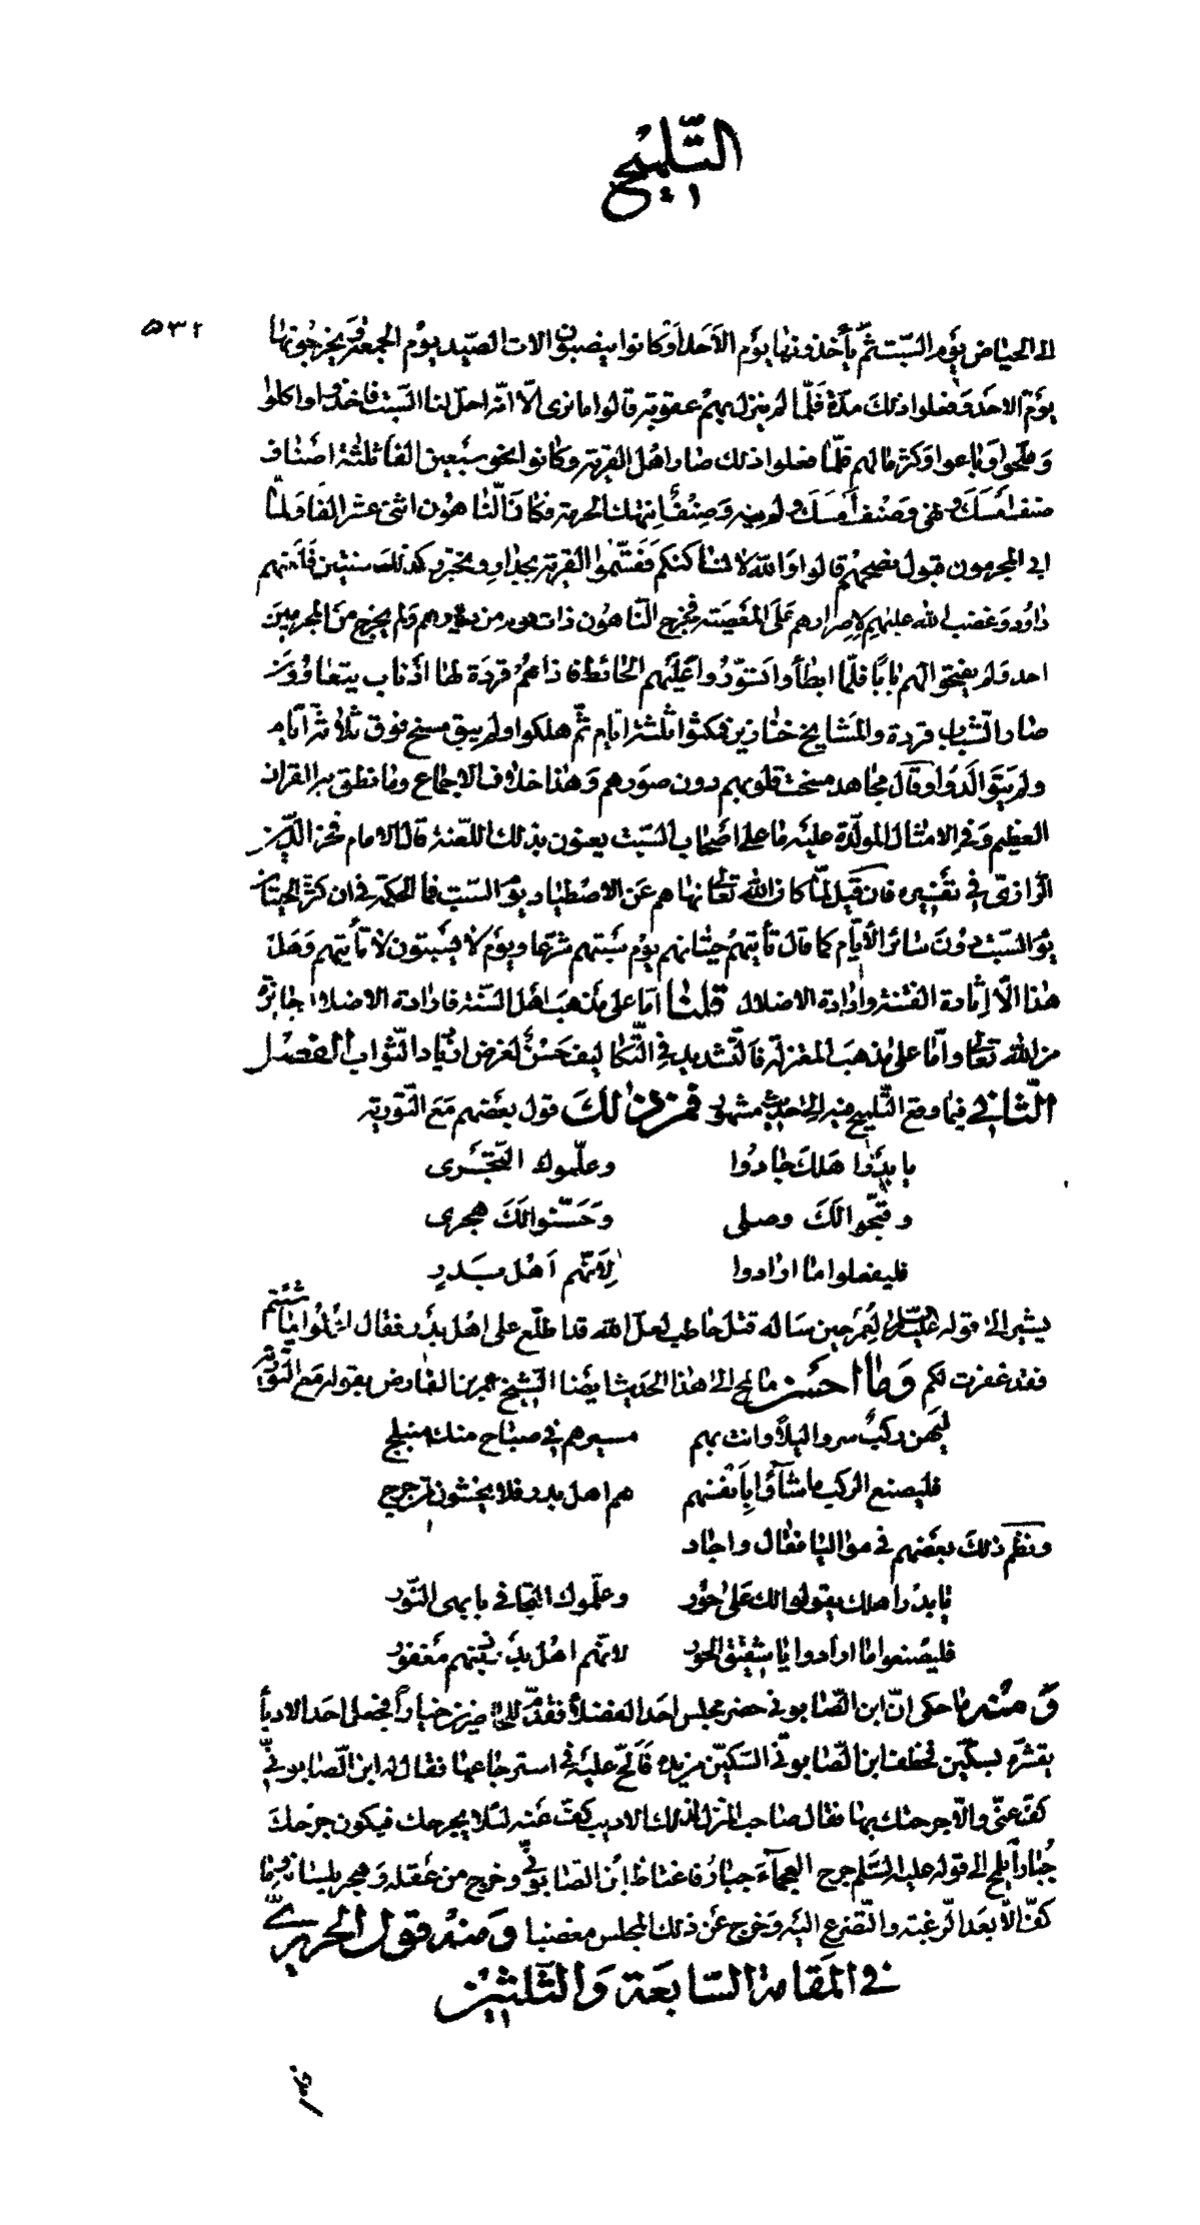 التلميح
٥٣٢
الى الحياض يوم السبت ثم يأخذونها يوم الأحد أو كانوا ينصبون الات الصيد يوم الجمعة ويخرجونها
يوم الاحد وفعلوا ذلك مدة فلما لم ينزل بهم عقوبة قالوا ما نرى الا انه احل لنا السبت فاخذوا واكلوا
وملحوا وباعوا وكثر مالهم فلما فعلوا ذلك صار اهل القرية وكانوا نحو سبعين الفا ثلثة اصناف
صنف امسك ونهى وصنف امسك ولم ينه وصنف انتهك الحرمة فكان الناهون اثنى عشر الفا ولما
ابى المجرمون قبول نصحهم قالوا والله لا نساكنكم فقسموا القرية بجدار وغبروا كذلك سنتين فلعنهم
داود وغضب الله عليهم لاصرارهم على المعصية فخرج الناهون ذات يوم من دورهم ولم يخرج من المجرمين
احد ولم يفتحوا لهم بابا فلما ابطأوا تسوروا عليهم الحائط فاذا هم قردة لها اذناب يتعاوون
صار الشباب قردة والمشايخ خنازير فمكثوا ثلثة ايام ثم هلكوا ولم يبق مسخ فوق ثلاثة أيام
ولم يتوالدوا وقال مجاهد مسخت قلوبهم دون صورهم وهذا خلاف الاجماع وما نطق به القران
العظيم وفى الامثال المولدة عليه ما على اصحاب السبت يعنون بذلك اللعنة قال الامام فخر الدين
الرازى في تفسيره فان قيل لما كان الله تعالى نهاهم عن الاصطياد يوم السبت فما الحكمة فى ان كثر الحيتان
يوم السبت دون سائر الأيام كما قال تأتيهم حيتانهم يوم سبتهم شرعا ويوم لا يسبتون لا تأتيهم وهل
هذا الا إثارة الفتنة وارادة الاضلال قلنا اما على مذهب اهل السنة فارادة الاضلال جائزة
من الله تعالى واما على مذهب المعتزلة فالتشديد في التكاليف حسن لغرض ازدياد الثواب الفصل
الثاني فيما وقع التلميح فيه الى حديث مشهور فمن ذلك قول بعضهم مع التورية
يا بدر اهلك جاروا وعلموك التجرى
وقبحوا لك وصلى وحسنوا لك هجرى
فليفعلوا ما ارادوا لانهم اهل بدر
يشير الى قوله عليه السلام لعمر حين ساله قتل حاطب لعل الله قد اطلع على اهل بدر فقال اعملوا ما شئتم
فقد غفرت لكم وما احسن ما لمح الى هذا الحديث ايضا الشيخ عمر بن الفارض بقوله مع التورية
ليهن ركب سروا ليلا وانت بهم مسيرهم في صباح منك منبلج
فليصنع الركب ما شاؤا بأنفسهم هم اهل بدر فلا يخشون من حرج
ونظم ذلك بعضهم في مواليا فقال واجاد
يا بدر اهلك يقولوا لك على جور وعلموك التجافى يا بهى النور
فليصنعوا ما ارادوا يا شقيق الحور لانهم اهل بدر ذنبهم مغفور
ومنه ما حكى ان ابن الصابونى حضر مجلس احد الفضلاء فقدم للحاضرين خيارا فجعل احد الادبا
يقشره بسكين فخطف ابن الصابونى السكين من يده فألح عليه فى استرجاعها فقال له ابن الصابونى
كف عنى والا جرحتك بها فقال صاحب المنزل لذلك الاديب كف عنه لئلا يجرحك فيكون جرحك
جبارا يلمح الى قوله عليه السلم جرح العجماء جبار فاغتاظ ابن الصابونى وخرج من عقله وهجر بلسانه وما
كف الا بعد الرغبة والتضرع اليه وخرج عن ذلك المجلس مغضبا ومنه قول الحريرى
فى المقامة السابعة والثلثين